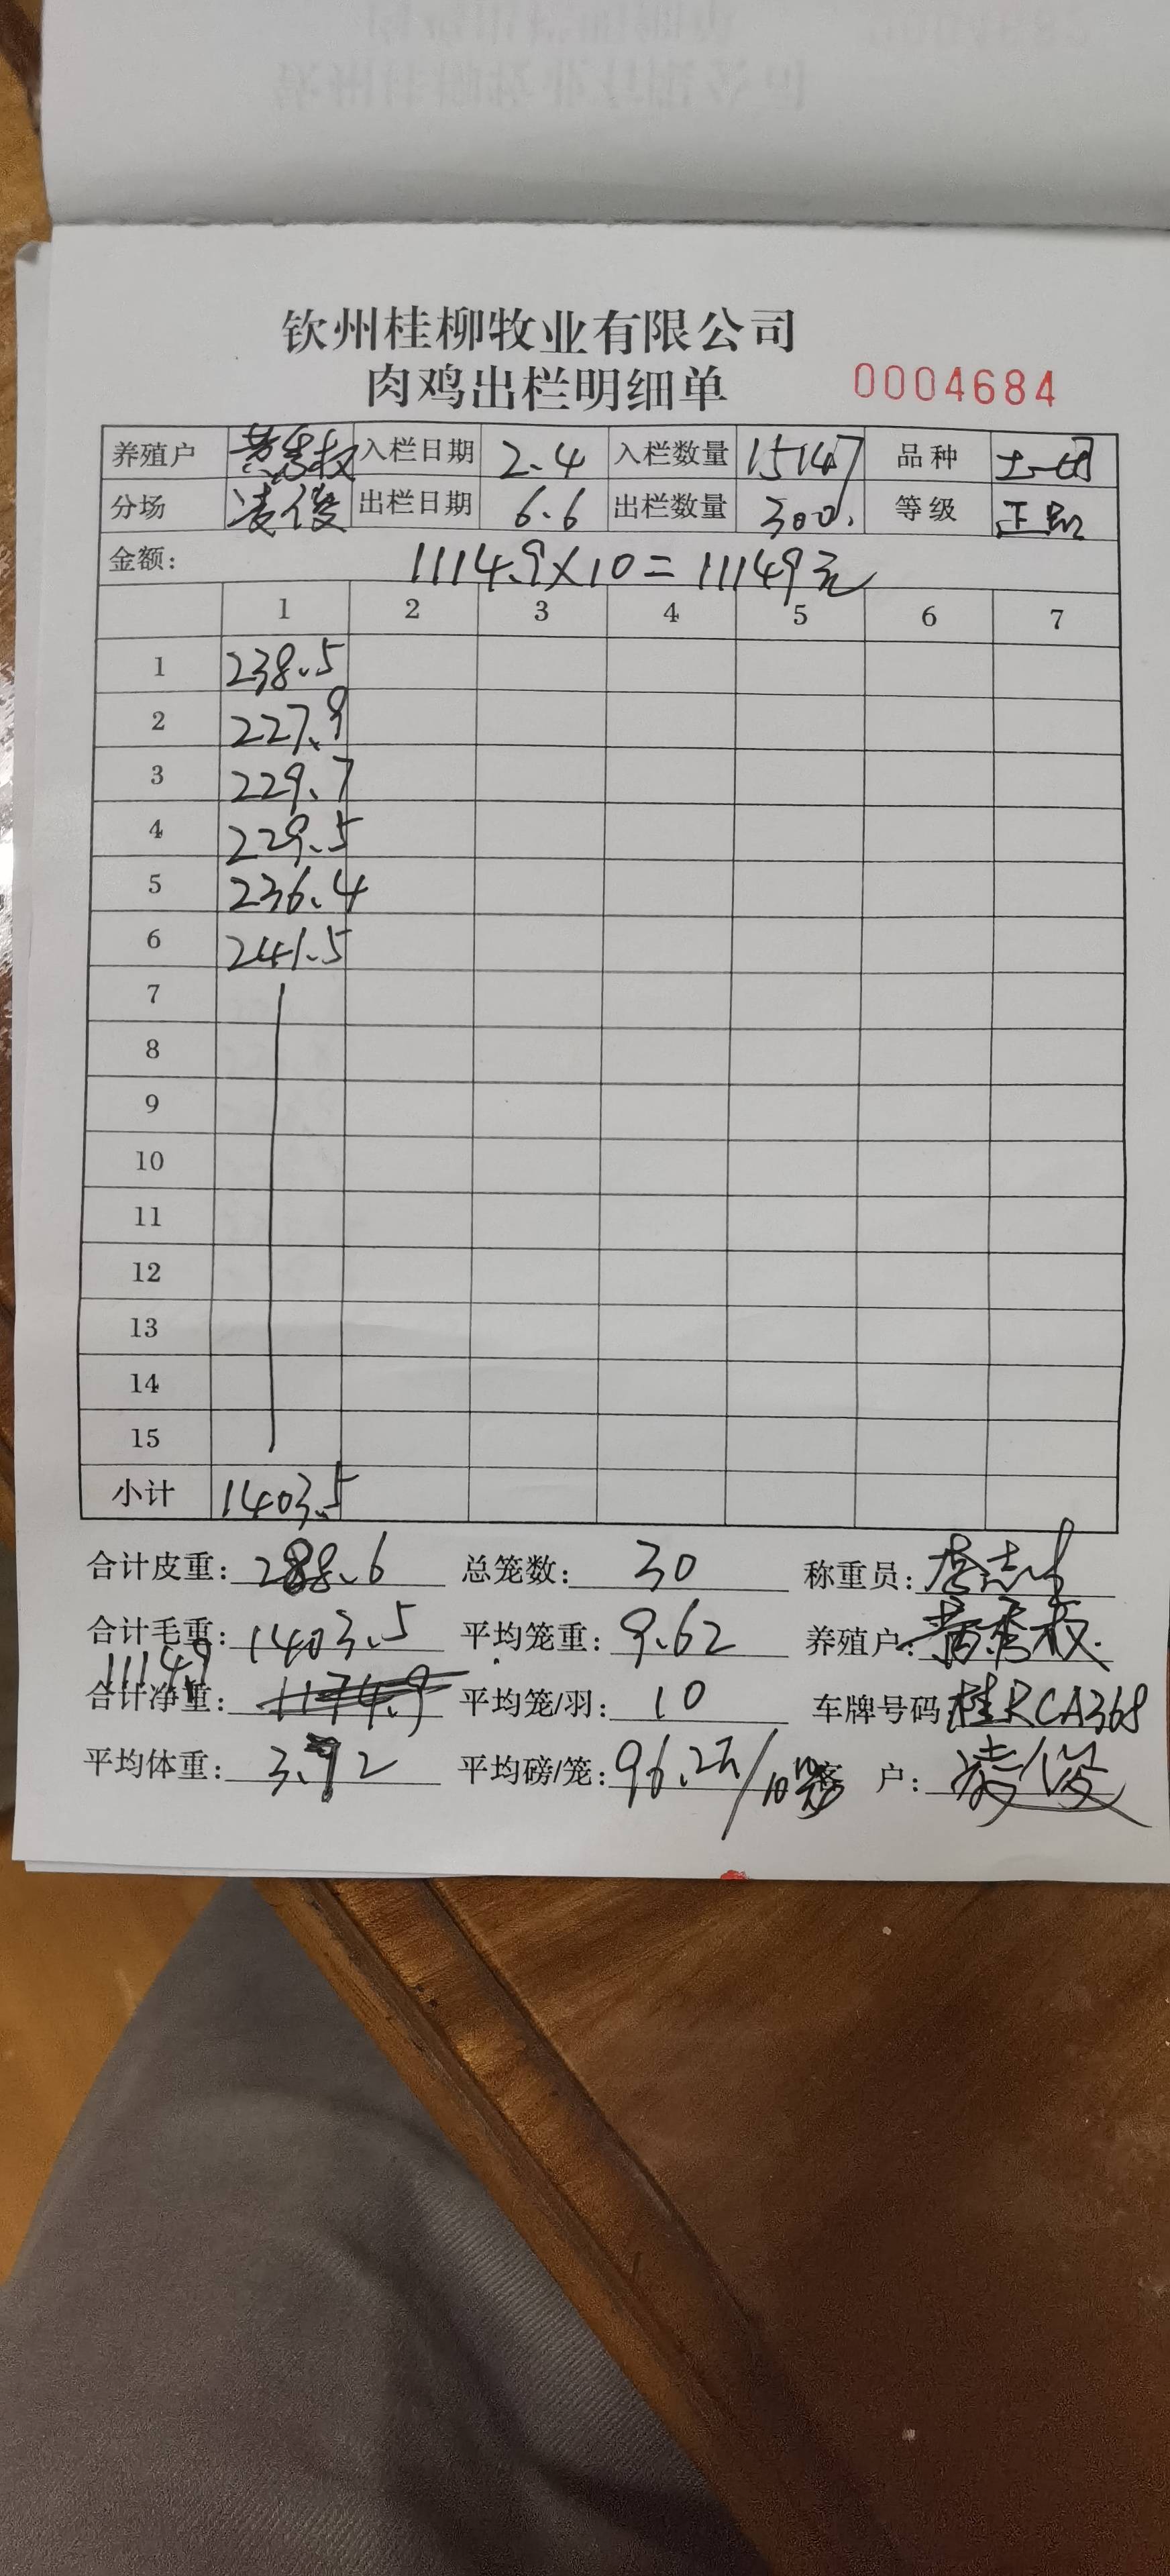 钦州桂柳牧业有限公司
肉鸡出栏明细单 0004684
养殖户 入栏日期 2.4 入栏数量 15147 品种
分场 凌俊 出栏日期 6.6 出栏数量 300 等级 正品
金额: 1114.9×10=11149元
1 2 3 4 5 6 7
1 238.5
2 227.9
3 229.7
4 229.5
5 236.4
6 241.5
7
8
9
10
11
12
13
14
15
小计 1403.5
合计皮重: 288.6 总笼数: 30 称重员:
合计毛重: 1403.5 平均笼重: 9.62 养殖户:
1114.9
合计净重: 1174.9 平均笼/羽: 10 车牌号码 桂RCA368
平均体重: 3.72 平均磅/笼: 96.2斤/10 户: 凌俊